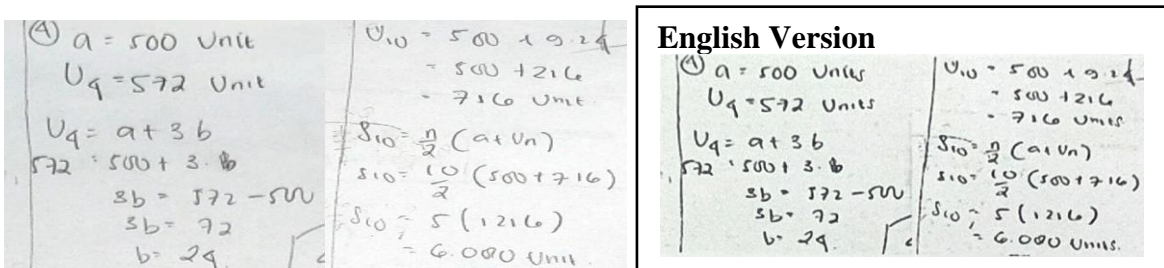 ④ a = 500 Unit
U4 = 572 Unit
U4 = a + 3 b
572 = 500 + 3 . b
3b = 572 - 500
3b = 72
b = 24
U10 = 500 + 9.24
= 500 + 216
= 716 Unit
S10 = n/2 (a + Un)
S10 = 10/2 (500 + 716)
S10 = 5 (1216)
= 6.080 Unit.
English Version
④ a = 500 Units
U4 = 572 Units
U4 = a + 3 b
572 = 500 + 3 . b
3b = 572 - 500
3b = 72
b = 24
U10 = 500 + 9.24
= 500 + 216
= 716 Units
S10 = n/2 (a + Un)
S10 = 10/2 (500 + 716)
S10 = 5 (1216)
= 6.080 Units.